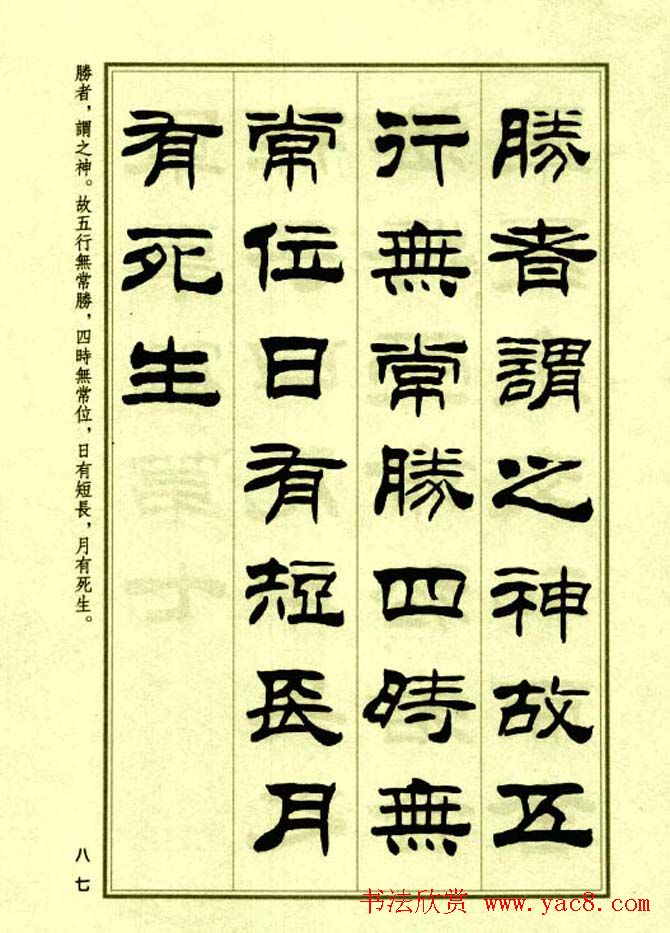 勝者謂之神故五
行無常勝四時無
常位日有短長月
有死生
勝者，謂之神。故五行無常勝，四時無常位，日有短長，月有死生。
八七
书法欣赏 www.yac8.com